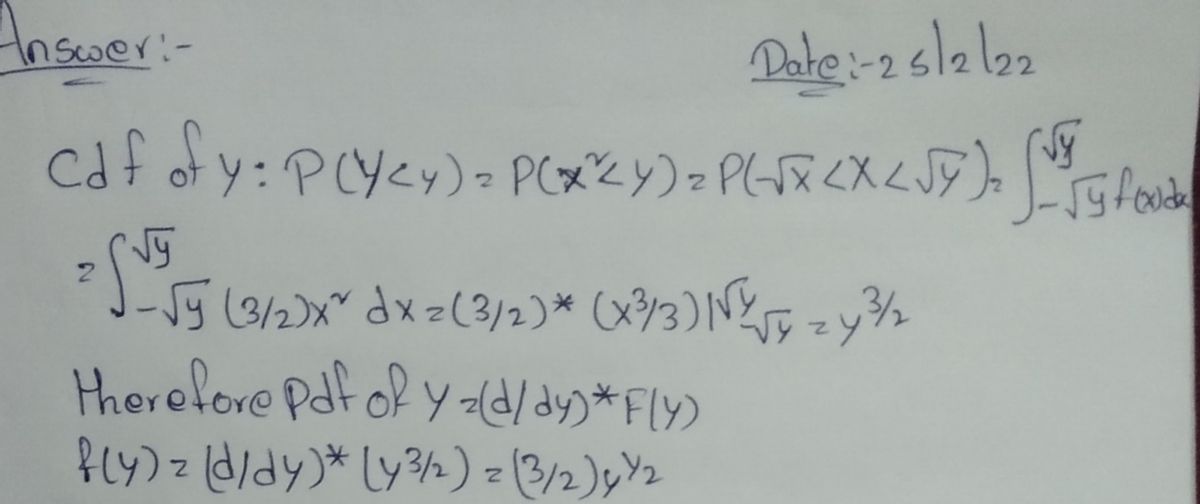 Answer:- Date:-25/2/22
Cdf of y: P(Y<y) = P(x²<y) = P(-√x<X<√y) = ∫_{-√y}^{√y} f(x)dx
= ∫_{-√y}^{√y} (3/2)x² dx = (3/2)* (x³/3)|^{√y}_{-√y} = y^{3/2}
Therefore Pdf of y = (d/dy)*F(y)
f(y) = (d/dy)* (y^{3/2}) = (3/2)y^{1/2}